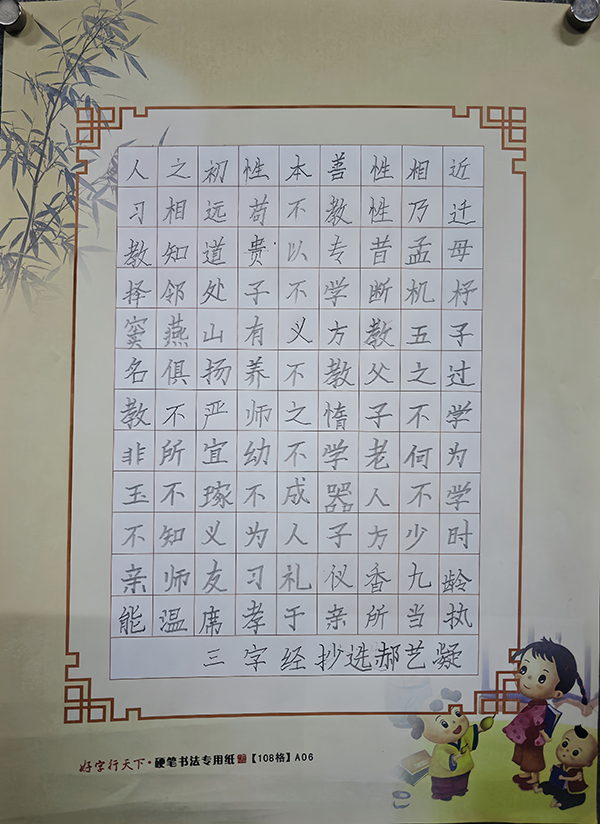 人之初性本善性相近
习相远苟不教性乃迁
教知道贵以专昔孟母
择邻处子不学断机杼
窦燕山有义方教五子
名俱扬养不教父之过
教不严师之惰子不学
非所宜幼不学老何为
玉不琢不成器人不学
不知义为人子方少时
亲师友习礼仪香九龄
能温席孝于亲所当执
三字经抄选郝艺凝
好字行天下·硬笔书法专用纸【108格】A06